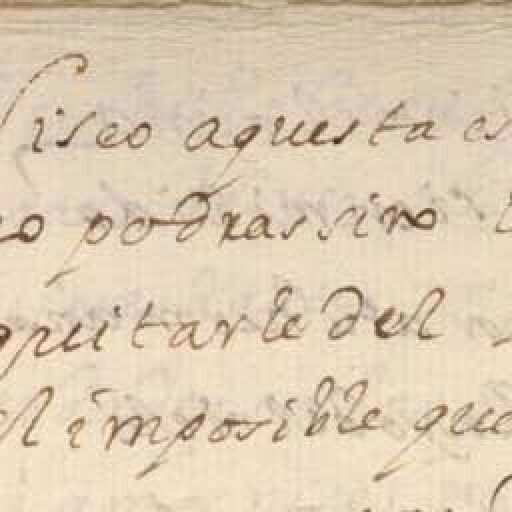 liseo aquesta es
eo podras sino
quitarle del
el imposible que